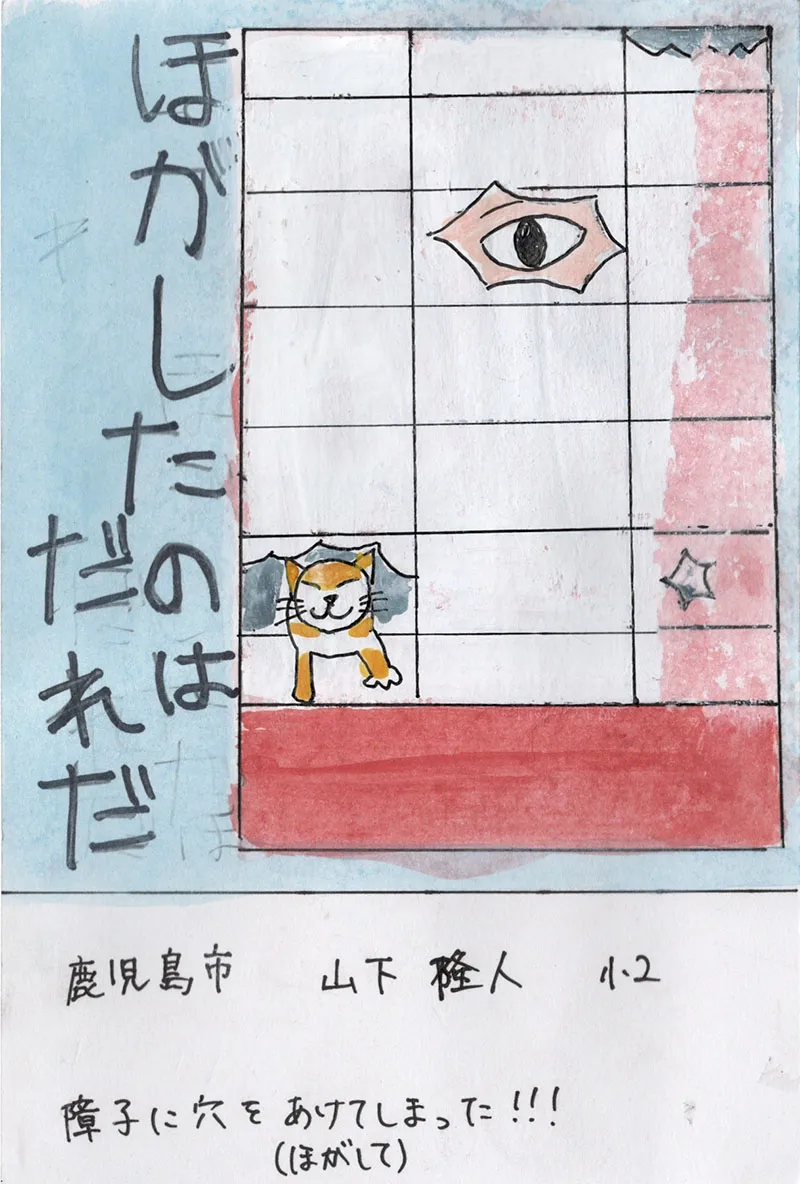 ほがしたのは
だれだ
鹿児島市 山下 隆人 小2
障子に穴をあけてしまった!!!
(ほがして)